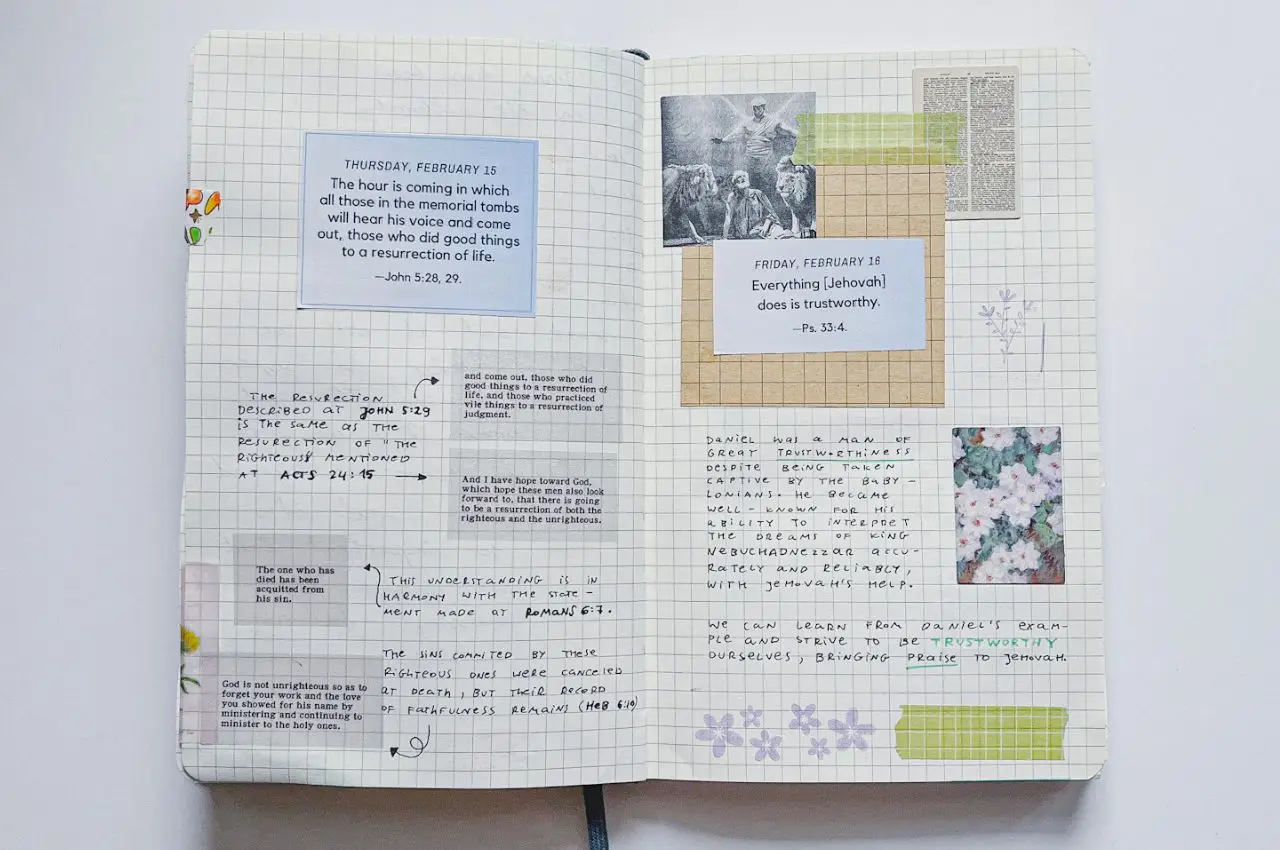 THURSDAY, FEBRUARY 15
The hour is coming in which
all those in the memorial tombs
will hear his voice and come
out, those who did good things
to a resurrection of life.
—John 5:28, 29.
THE RESURECTION
DESCRIBED AT JOHN 5:29
IS THE SAME AS THE
RESURECTION OF "THE
RIGHTEOUS" MENTIONED
AT ACTS 24:15
and come out, those who did
good things to a resurrection of
life, and those who practiced
vile things to a resurrection of
judgment.
And I have hope toward God,
which hope these men also look
forward to, that there is going
to be a resurrection of both the
righteous and the unrighteous.
The one who has
died has been
acquitted from
his sin.
THIS UNDERSTANDING IS IN
HARMONY WITH THE STATE-
MENT MADE AT ROMANS 6:7.
THE SINS COMMITED BY THESE
RIGHTEOUS ONES WERE CANCELED
AT DEATH, BUT THEIR RECORD
OF FAITHFULNESS REMAINS (HEB 6:10)
God is not unrighteous so as to
forget your work and the love
you showed for his name by
ministering and continuing to
minister to the holy ones.
FRIDAY, FEBRUARY 16
Everything [Jehovah]
does is trustworthy.
—Ps. 33:4.
DANIEL WAS A MAN OF
GREAT TRUSTWORTHINESS
DESPITE BEING TAKEN
CAPTIVE BY THE BABY-
LONIANS. HE BECAME
WELL-KNOWN FOR HIS
ABILITY TO INTERPRET
THE DREAMS OF KING
NEBUCHADNEZZAR ACCU-
RATELY AND RELIABLY,
WITH JEHOVAH'S HELP.
WE CAN LEARN FROM DANIEL'S EXAM-
PLE AND STRIVE TO BE TRUSTWORTHY
OURSELVES, BRINGING PRAISE TO JEHOVAH.